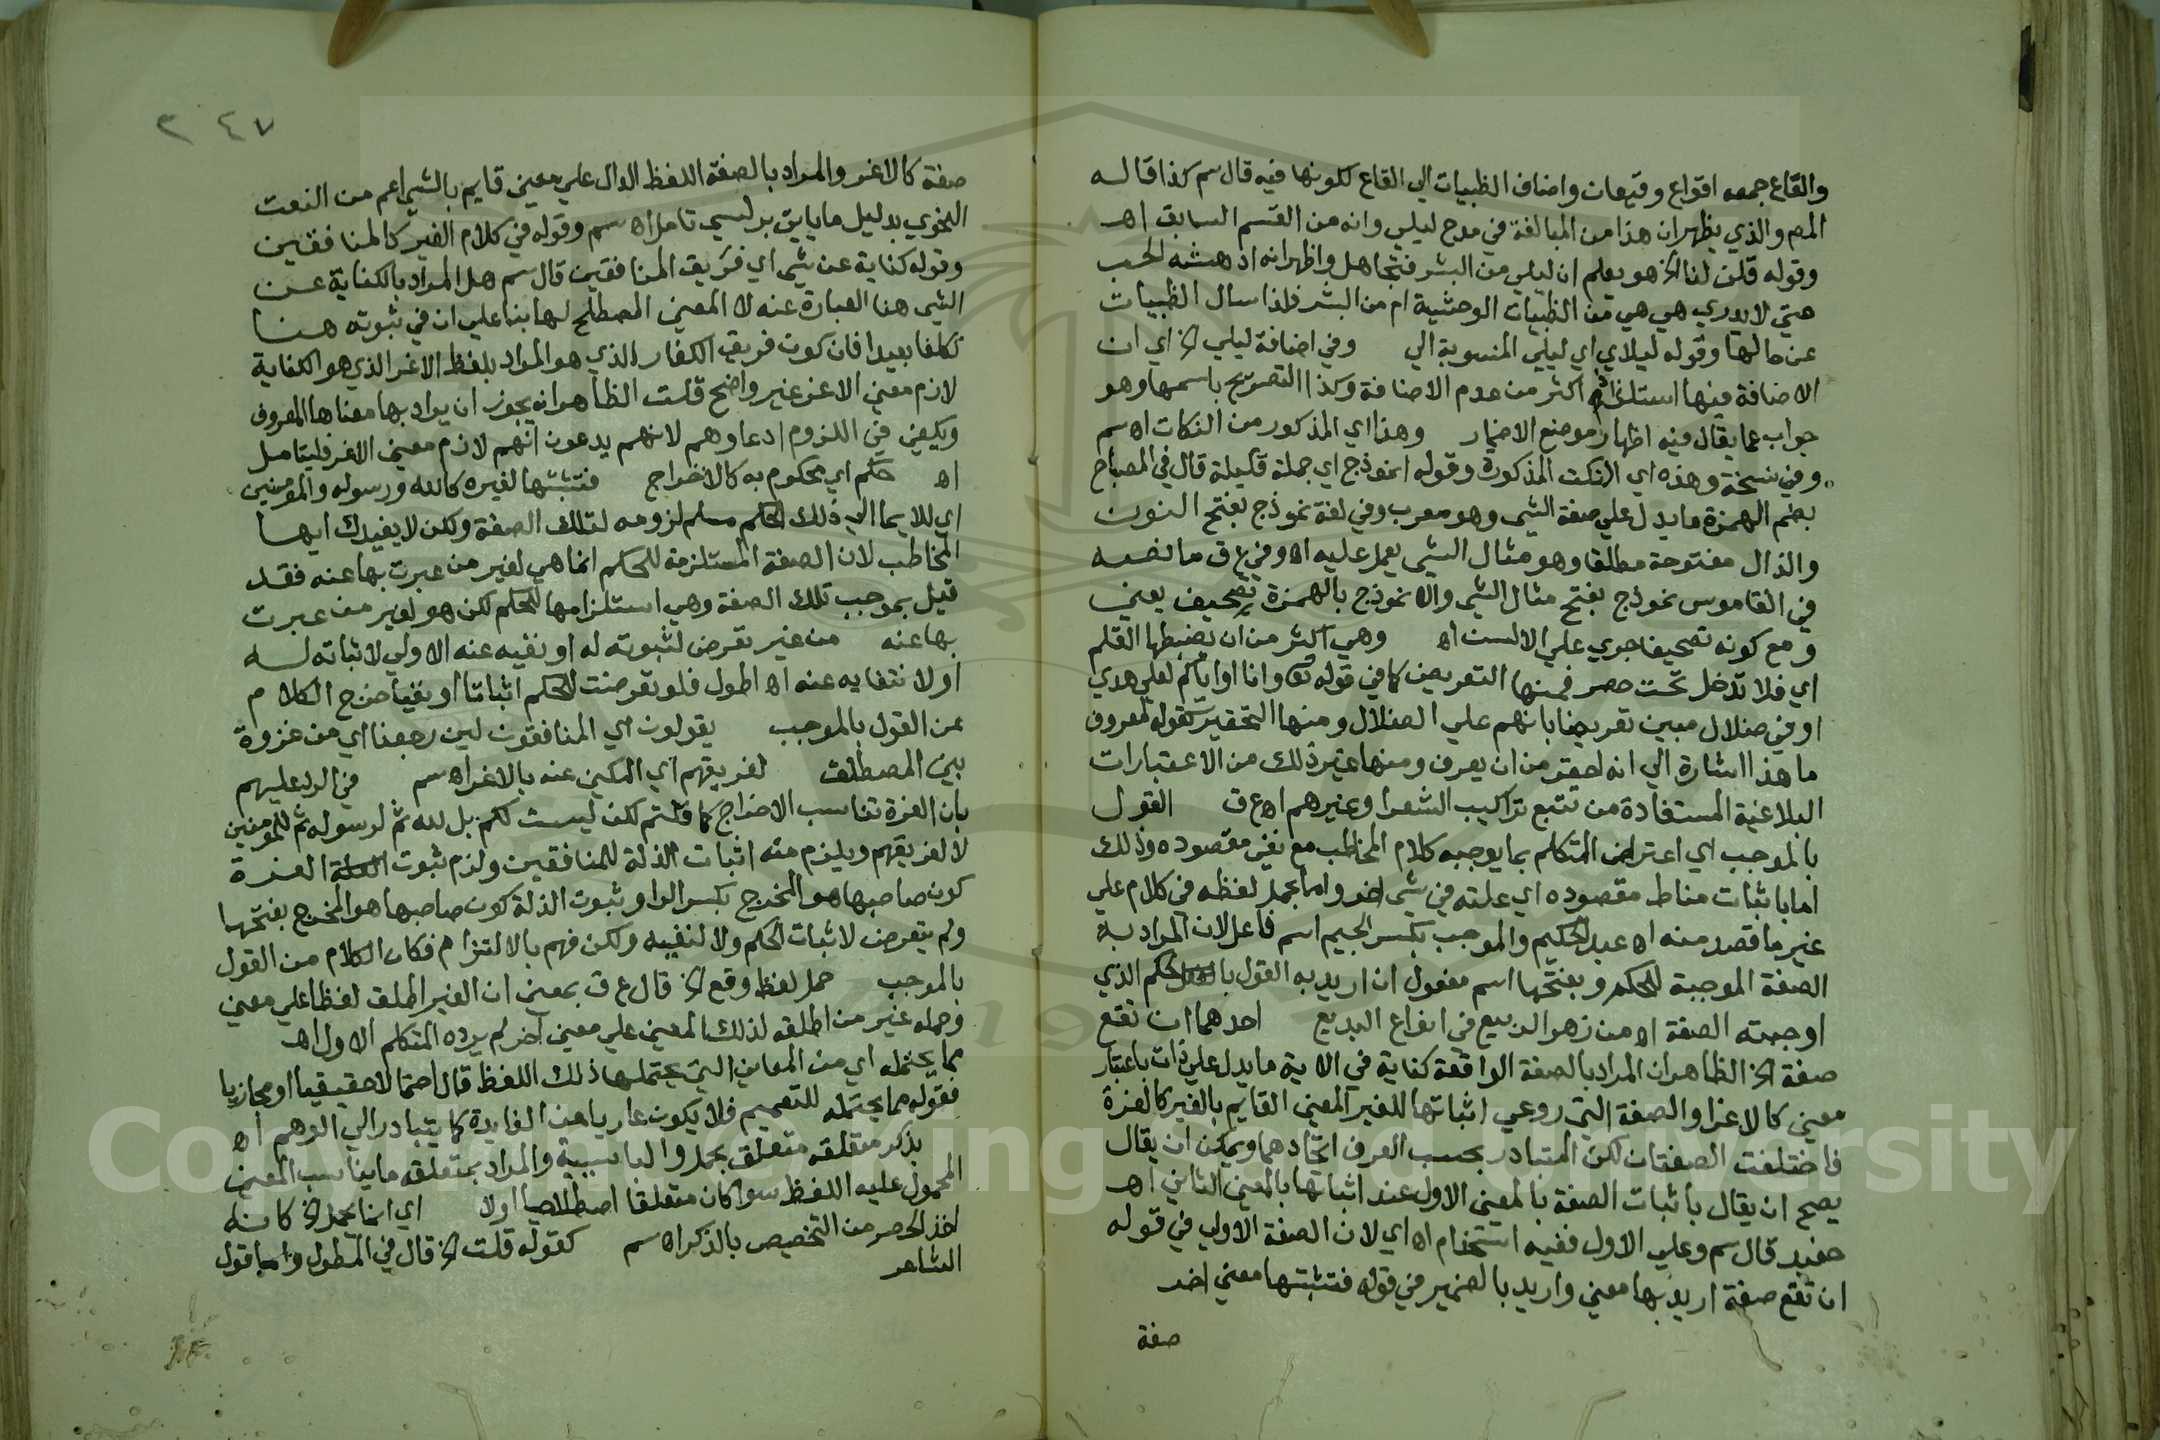 والقاع جمعه اقواع وقيعات واضاف الظبيات الي القاع لكونها فيه قال سم كذا قاله
المص والذي يظهر ان هذا من المبالغة في مدح ليلي وانه من القسم السابق اهـ
وقوله قلن لنا الخ هو يعلم ان ليلي من البشر فتجاهل واظهر انه ادهشه الحب
حتي لا يدري هي هي من الظبيات الوحشية ام من البشر فلذا سال الظبيات
عن حالها وقوله ليلاي اي ليلي المنسوبة الي وفي اضافة ليلي الخ اي ان
الاضافة فيها استلذاذ اكثر من عدم الاضافة وكذا التصريح باسمها وهو
جواب عما يقال فيه اظهار موضع الاضمار وهذا اي المذكور من النكات اه سم
وفي نسخة وهذه اي النكت المذكورة وقوله انموذج اي جملة قليلة قال في المصباح
بضم الهمزة ما يدل علي صفة الشي وهو معرب وفي لغة نموذج بفتح النون
والذال مفتوحة مطلقا وهو مثال الشي يعمل عليه اه وفي ع ق ما نصه
في القاموس نموذج بفتح مثال الشي والانموذج بالهمزة تصحيف يعني
ومع كونه تصحيفا جري علي الالسن اه وهي اكثر من ان يضبطها القلم
اي فلا تدخل تحت حصر فمنها التعريض كما في قوله تع وانا او اياكم لعلي هدي
او في ضلال مبين تعريضا بانهم علي الضلال ومنها التحقير كقوله لمعروف
ما هذا اشارة الي انه احقر من ان يعرف ومنها غير ذلك من الاعتبارات
البلاغية المستفادة من تتبع تراكيب الشعرا وغيرهم اه ع ق القول
بالموجب اي اعتراض المتكلم بما يوجبه كلام المخاطب مع نفي مقصوده وذلك
اما باثبات مناط مقصوده اي علته في شي اخر واما بحمل لفظه في كلام علي
غير ما قصد منه اه عبد الحكيم والموجب بكسر الجيم اسم فاعل لان المراد به
الصفة الموجبة للحكم وبفتحها اسم مفعول ان اريد به القول بالحكم الذي
اوجبته الصفة اه من زهر الربيع في انواع البديع احدهما ان تقع
صفة الخ الظاهر ان المراد بالصفة الواقعة كناية في الاية ما يدل علي ذات باعتبار
معني كالاعز والصفة التي روعي اثباتها للغير المعني القايم بالغير كالعزة
فاختلفت الصفتان لكن المتبادر بحسب العرف اتحادهما ويمكن ان يقال
يصح ان يقال باثبات الصفة بالمعني الاول عند اثباتها بالمعني الثاني اهـ
حفيد قال سم وعلي الاول ففيه استخدام اه اي لان الصفة الاولي في قوله
ان تقع صفة اريد بها معني واريد بالضمير في قوله فتثبتها معني اخر
صفة
٢٤٧
صفة كالاعز والمراد بالصفة اللفظ الدال علي معني قايم بالشي اعم من النعت
النحوي بدليل ما ياتي بدليل تامل اه سم وقوله في كلام الغير كالمنافقين
وقوله كناية عن شي اي فريق المنافقين قال سم هل المراد بالكناية عن
الشي هنا العبارة عنه لا المعني المصطلح لها بنا علي ان في ثبوته هنا
تكلفا بعيدا فان كون فريق الكفار الذي هو المراد بلفظ الاعز الذي هو الكناية
لازم معني الاعز غير واضح قلت الظاهر انه يجوز ان يراد بها معناها المعروف
ويكفي في اللزوم ادعاوهم لانهم يدعون انهم لازم معني الاعز فليتامل
اه حكم اي محكوم به كالاخراج فتثبتها لغيره كالله ورسوله والمؤمنين
اي للايما الي ذلك الحكم مسلم لزومه لتلك الصفة ولكن لا يفيدك ايها
المخاطب لان الصفة المستلزمة للحكم انما هي لغير من عبرت بها عنه فقد
قيل بموجب تلك الصفة وهي استلزامها للحكم لكن هو لغير من عبرت
بها عنه من غير تعرض لثبوته له او نفيه عنه الاولي لاثباته له
او لانتفايه عنه اه اطول فلو تعرضت للحكم اثباتا او نفيا خرج الكلام
عن القول بالموجب يقولون اي المنافقون لين رجعنا اي من غزوة
بني المصطلق لفريقهم اي المكني عنه بالاعز اه سم في الرد عليهم
بان العزة تناسب الاخراج كما قلتم لكن ليست لكم بل لله ثم لرسوله ثم للمؤمنين
لا لفريقهم ويلزم منه اثبات الذلة للمنافقين ولزم ثبوت العزة
كون صاحبها هو المخرج بكسر الرا وثبوت الذلة كون صاحبها هو المخرج بفتحها
ولم يتعرض لاثبات الحكم ولا لنفيه ولكن فهم بالالتزام فكان الكلام من القول
بالموجب حمل لفظ وقع الخ قال ع ق بمعني ان الغير اطلق لفظا علي معني
وحمله غير من اطلقه لذلك المعني علي معني اخر لم يرده المتكلم الاول اهـ
مما يحتمله اي من المعاني التي يحتملها ذلك اللفظ قال احتمالا حقيقيا او مجازيا
فقوله مما يحتمله للتعميم فلا يكون عاريا من الفايدة كما يتبادر الي الوهم اه
بذكر متعلقه متعلق بحمل والبا سببية والمراد بمتعلقه ما يناسب المعني
المحمول عليه اللفظ سوا كان متعلقا اصطلاحيا اولا اي انما يحمل الخ كانه
اخذ الحصر من التخصيص بالذكر اه سم كقوله قلت الخ قال في المطول واما قول
الشاعر
Copyright © King Saud University